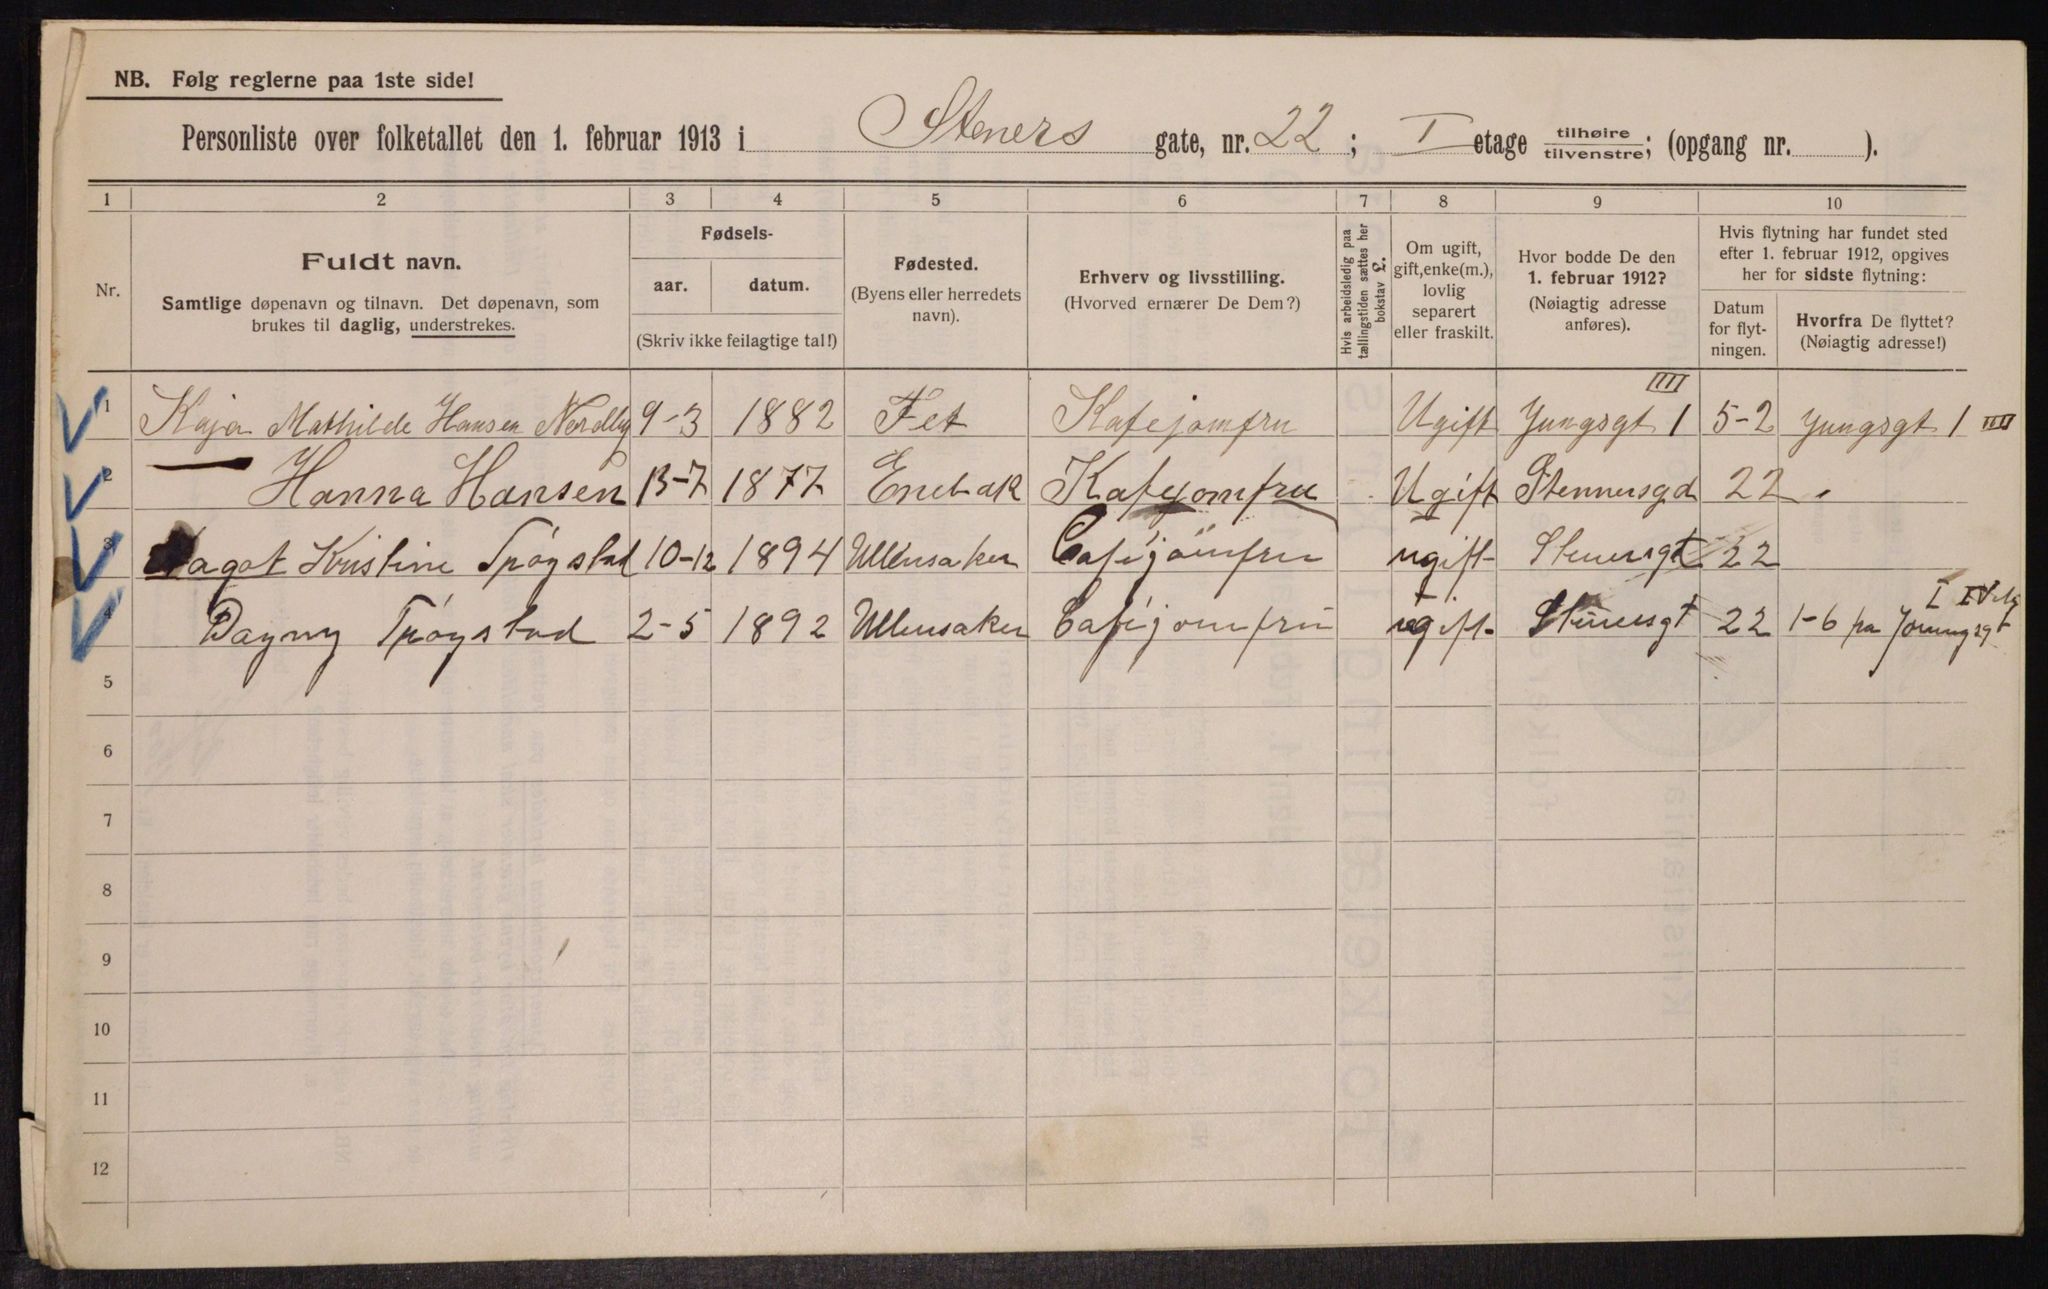 NB. Følg reglerne paa 1ste side!
Personliste over folketallet den 1. februar 1913 i Steners gate, nr. 22; I etage tilhøire/tilvenstre; (opgang nr. ).
1 2 3 4 5 6 7 8 9 10
Nr.
Fuldt navn.
Samtlige døpenavn og tilnavn. Det døpenavn, som
brukes til daglig, understrekes.
Fødsels-
aar. datum.
(Skriv ikke feilagtige tal!)
Fødested.
(Byens eller herredets
navn).
Erhverv og livsstilling.
(Hvorved ernærer De Dem?)
Hvis arbeidsledig paa
tællingstiden sættes her
bokstav £.
Om ugift,
gift, enke(m.),
lovlig
separert
eller fraskilt.
Hvor bodde De den
1. februar 1912?
(Nøiagtig adresse
anføres).
Hvis flytning har fundet sted
efter 1. februar 1912, opgives
her for sidste flytning:
Datum
for flyt-
ningen.
Hvorfra De flyttet?
(Nøiagtig adresse!)
1 Kaja Mathilde Hansen Nordby 9-3 1882 Fet Kafejomfru Ugift Jungsgt 1 IIII 5-2 Jungsgt 1 IIII
2 — Hanna Hansen 13-7 1877 Enebak Kafejomfru Ugift Stennersgd 22.
3 Dagot Kristine Trøgstad 10-12 1894 Ullensaker Cafejomfru ugift Stenersgt 22
4 Dagny Trøgstad 2-5 1892 Ullensaker Cafejomfru ugift Stenersgt 22 1-6 fra Joumgsgt I IV
5
6
7
8
9
10
11
12